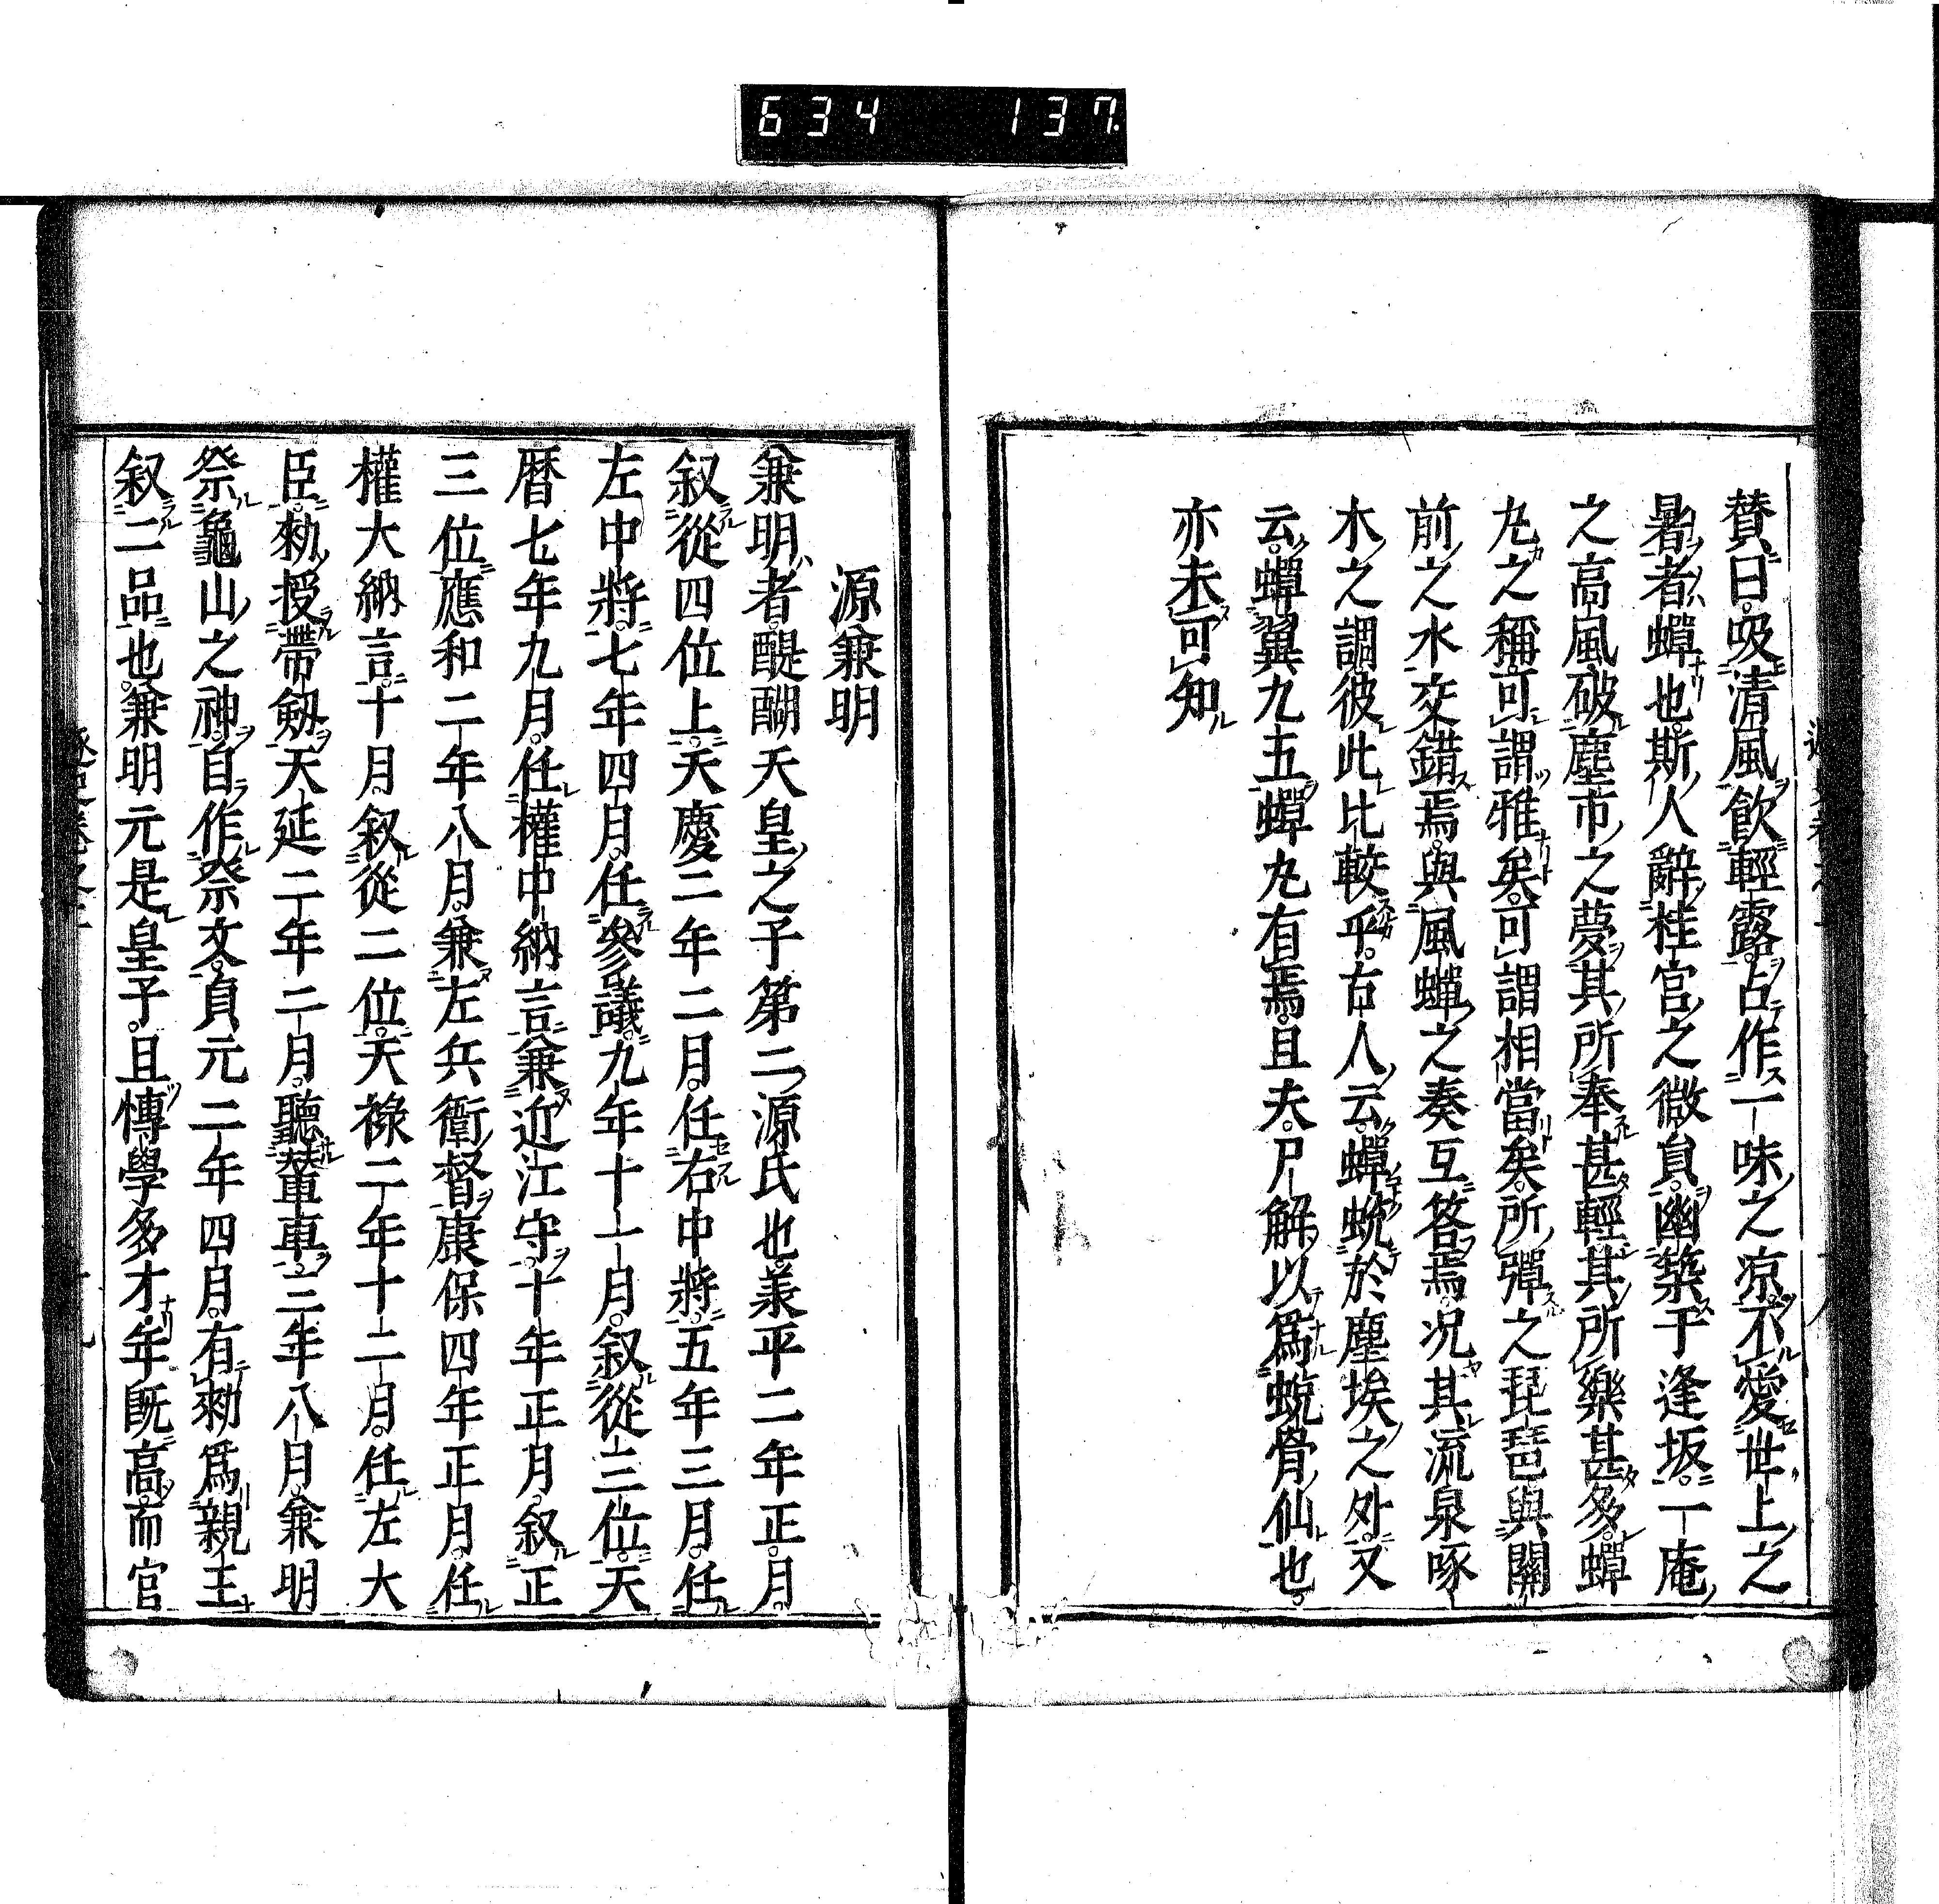 634 137
賛曰吸清風飲輕露占作一味之凉不愛世上之
暑者蟬也斯人辭桂官之微負幽築于逢坂一庵
之高風破塵市之夢其所奉甚輕其所樂甚多蟬
丸之稱可謂雅矣可謂相當矣所彈之琵琶與關
前之水交錯焉與風蟬之奏互答焉况其流泉啄
木之調彼此比較乎古人云蟬蛻於塵埃之外又
云蟬翼九五蟬丸有焉且夫尸解以爲蛻骨仙也
亦未可知
源兼明
兼明者醍醐天皇之子第二源氏也羕平二年正月
叙從四位上天慶二年二月任右中將五年三月任
左中將七年四月任參議九年十一月叙從三位天
暦七年九月任權中納言兼近江守十年正月叙正
三位應和二年八月兼左兵衛督康保四年正月任
權大納言十月叙從二位天祿二年十二月任左大
臣勅授帶劔天延二年二月聽輦車三年八月兼明
祭龜山之神自作祭文貞元二年四月有勅爲親王
叙二品也兼明元是皇子且愽學多才年既高而官